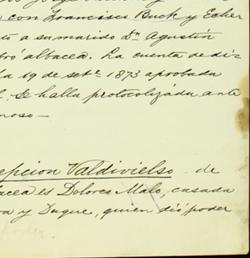 con Francisco Buck y Esther
á su marido Dn Agustín
tró albacea. La cuenta de di-
la 19 de setbe 1873 aprobada
Se halla protocolizada ante
moso —
epcion Valdivielso de
acea es Dolores Malo, casada
va y Duque, quien dió poder